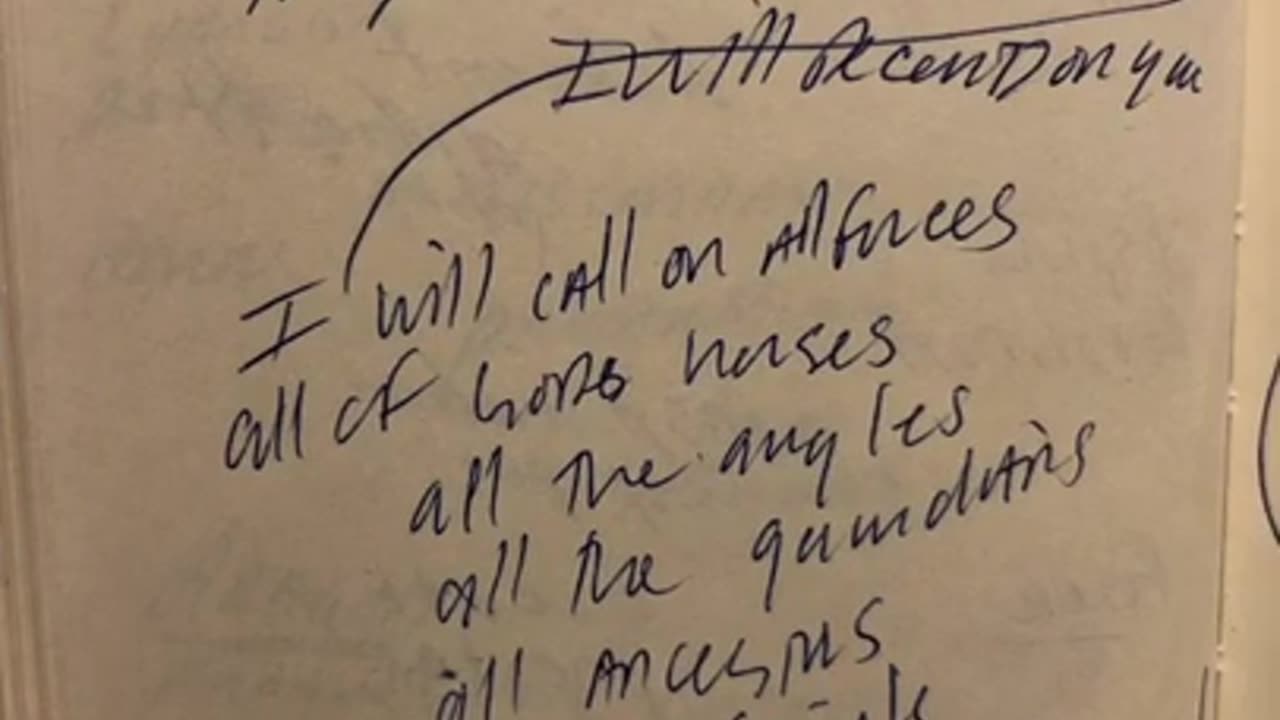 I will decent on you
I will call on all forces
all of gods horses
all the angles
all the guardians
all ancestors